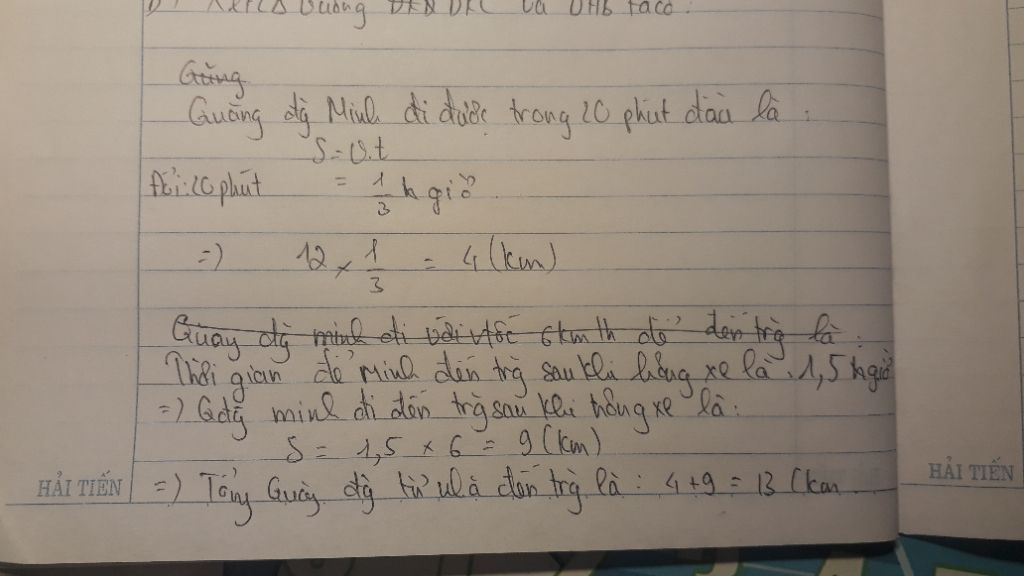 vuông và DHB ta có:
Quãng
Quãng đg Minh đi được trong 20 phút đầu là :
S = v.t
Đổi: 20 phút = 1/3 h giờ
=) 12 × 1/3 = 4 (km)
Quay đg minh đi với vtốc 6km th để đến trg là :
Thời gian để Minh đến trg sau khi hỏng xe là 1,5 h giờ
=) Qđg minh đi đến trg sau khi hỏng xe là:
S = 1,5 × 6 = 9 (km)
HẢI TIẾN
=) Tổng Quãg đg từ nhà đến trg là : 4+9 = 13 (km
HẢI TIẾN